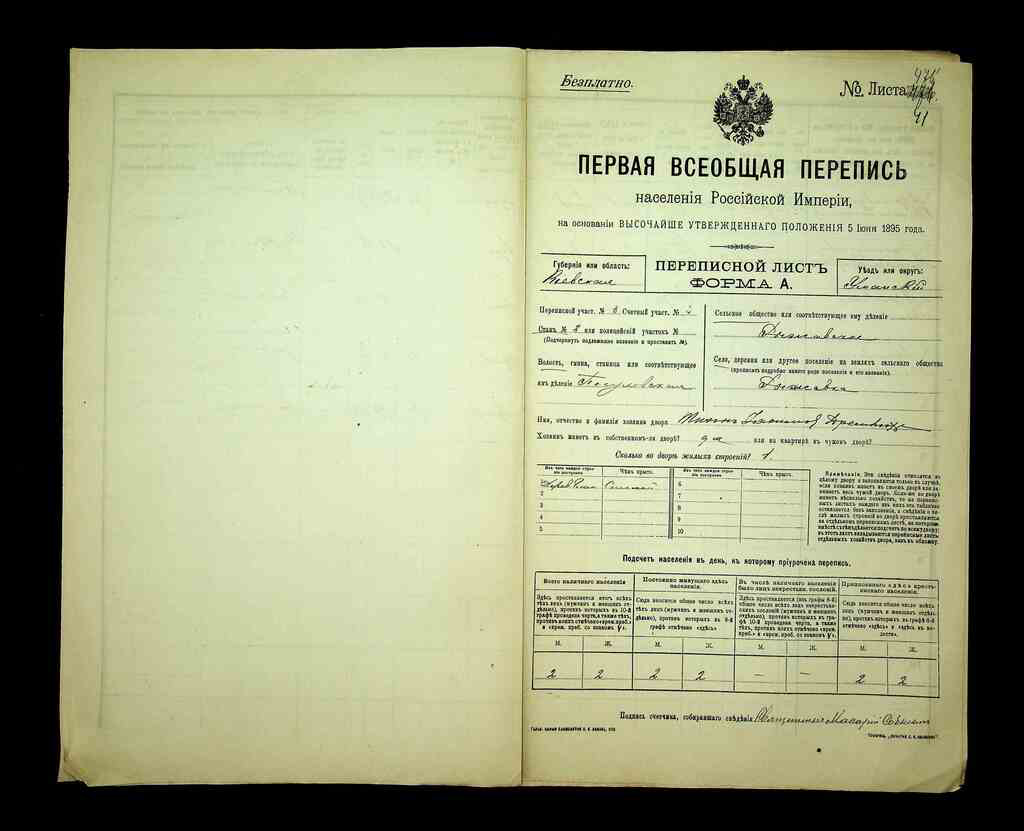 Безплатно.
№ Листа
41
ПЕРВАЯ ВСЕОБЩАЯ ПЕРЕПИСЬ
населенія Россійской Имперіи,
на основаніи ВЫСОЧАЙШЕ УТВЕРЖДЕННАГО ПОЛОЖЕНІЯ 5 Іюня 1895 года.
Губернія или область:
Кіевская
ПЕРЕПИСНОЙ ЛИСТЪ
ФОРМА А.
Уѣздъ или округъ:
Уманскій
Переписной участ. № Счетный участ. №
Станъ № или полицейскій участокъ №
(Подчеркнуть подлежащее названіе и проставить №).
Волость, гмина, станица или соотвѣтствующее
имъ дѣленіе
Сельское общество или соотвѣтствующее ему дѣленіе
Село, деревня или другое поселеніе на земляхъ сельскаго общества
(прописать подробно какого рода поселеніе и его названіе).
Имя, отчество и фамилія хозяина двора
Хозяинъ живетъ въ собственномъ-ли дворѣ? да или на квартирѣ въ чужомъ дворѣ?
Сколько во дворѣ жилыхъ строеній? 1.
Изъ чего каждое строеніе построено
Чѣмъ крыто.
Изъ чего каждое строеніе построено
Чѣмъ крыто.
6
2 7
3 8
4 9
5 10
Примѣчаніе. Эти свѣдѣнія относятся къ
цѣлому двору и заполняются только въ случаѣ,
если хозяинъ живетъ въ своемъ дворѣ или за-
нимаетъ весь чужой дворъ. Если-же во дворѣ
живетъ нѣсколько хозяйствъ, то на перепис-
ныхъ листахъ каждаго изъ нихъ эта табличка
оставляется безъ заполненія, а свѣдѣнія о чи-
слѣ жилыхъ строеній во дворѣ проставляются
на отдѣльномъ переписномъ листѣ, на которомъ
вмѣстѣ съ тѣмъ дѣлается подсчетъ по всему двору;
въ этотъ листъ вкладываются переписные листы
отдѣльныхъ хозяйствъ двора, какъ въ обложку.
Подсчетъ населенія въ день, къ которому пріурочена перепись.
Всего наличнаго населенія
Постоянно живущаго здѣсь населенія.
Въ числѣ наличнаго населенія было лицъ некрестьян. сословій.
Приписаннаго здѣсь крестьянскаго населенія.
Здѣсь проставляется итогъ всѣхъ
тѣхъ лицъ (мужчинъ и женщинъ от-
дѣльно), противъ которыхъ въ 10-й
графѣ проведена черта, а также тѣхъ,
противъ коихъ отмѣчено «врем. преб.»
и «врем. преб. со знакомъ V».
Сюда вносится общее число всѣхъ
тѣхъ лицъ (мужчинъ и женщинъ от-
дѣльно), противъ которыхъ въ 9-й
графѣ отмѣчено «здѣсь»
Здѣсь проставляется (изъ графы 4)
общее число всѣхъ лицъ некрестьян-
скихъ сословій (мужчинъ и женщинъ
отдѣльно), противъ коихъ въ гра-
фѣ 10-й проведена черта, а также
противъ коихъ отмѣчено «врем.
преб.» и «врем. преб. со знакомъ V».
Сюда вносится общее число всѣхъ
лицъ (мужчинъ и женщинъ отдѣль-
но), противъ которыхъ въ графѣ 8-й
отмѣчено «здѣсь» и «здѣсь въ во-
лости».
М. Ж. М. Ж. М. Ж. М. Ж.
2 2 2 2 — — 2 2
Подпись счетчика, собиравшаго свѣдѣнія